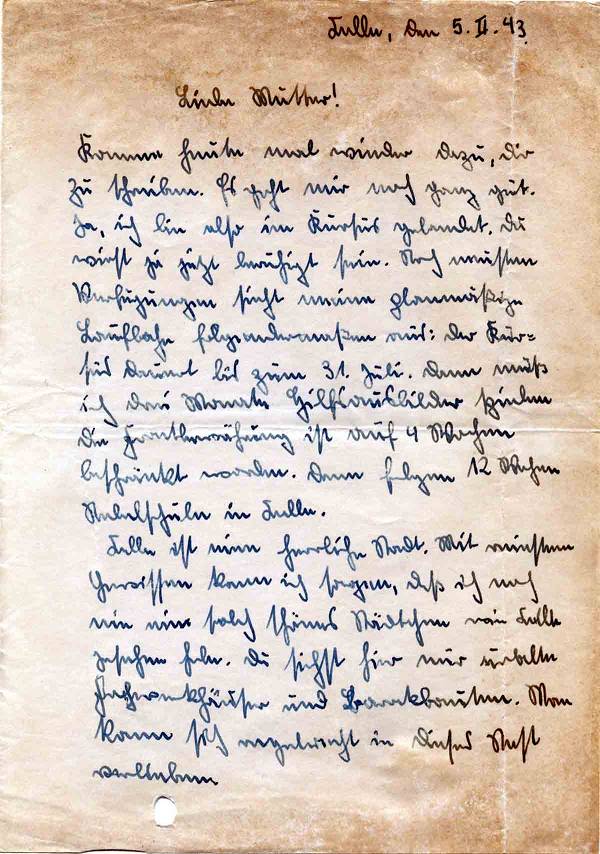 Celle, den 5. II. 43.
Liebe Mutter!
Komme heute mal wieder dazu, dir
zu schreiben. Es geht mir noch ganz gut.
Ja, ich bin also im Kursus gelandet. Du
wirst ja jetzt beruhigt sein. Nach neusten
Verfügungen sieht meine planmäßige
Laufbahn folgendermaßen aus: der Kur=
sus dauert bis zum 31. Juli. Dann muß
ich drei Monate Hilfsausbilder spielen
Die Frontbewährung ist auf 4 Wochen
beschränkt worden. Dann folgen 12 Wochen
Nebelschule in Celle.
Celle ist eine herrliche Stadt. Mit reinstem
Gewissen kann ich sagen, daß ich noch
nie ein solch schönes Städtchen wie Celle
gesehen habe. Du siehst hier nur uralte
Fachwerkhäuser und Barockbauten. Man
kann sich regelrecht in dieses Nest
verlieben